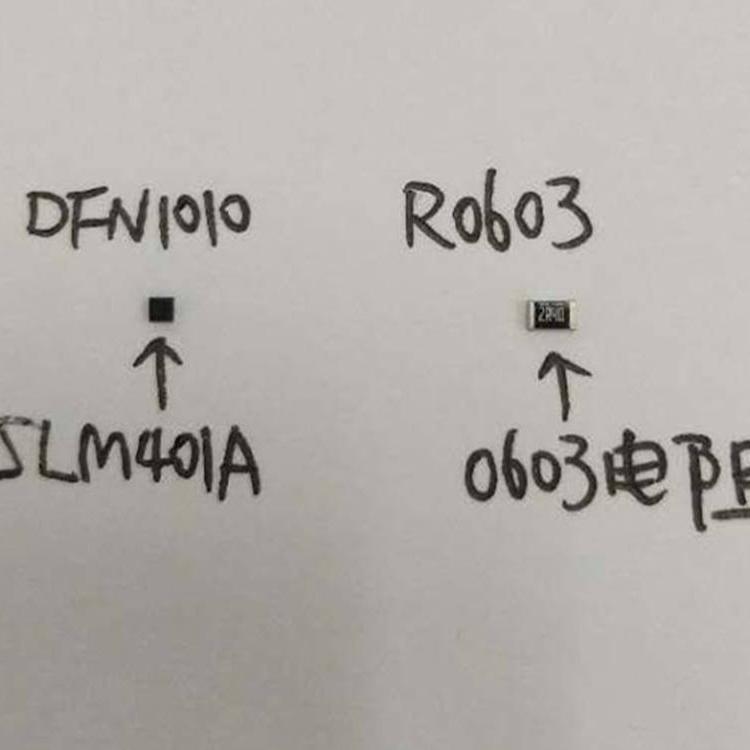 DFN1010
R0603
SLM401A
0603电阻